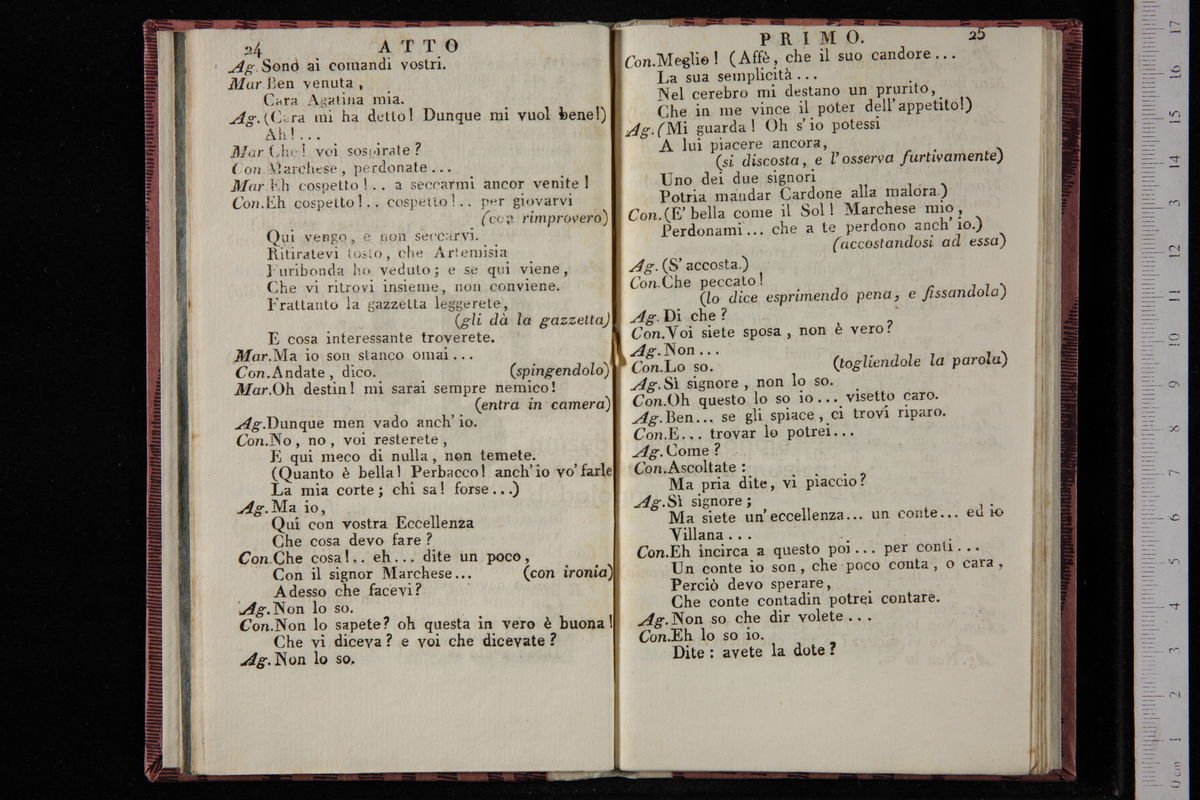 24 ATTO
Ag. Sono ai comandi vostri.
Mar Ben venuta,
Cara Agatina mia.
Ag. (Cara mi ha detto! Dunque mi vuol bene!)
Ah!...
Mar Che! voi sospirate?
Con. Marchese, perdonate...
Mar Eh cospetto!.. a seccarmi ancor venite!
Con. Eh cospetto!.. cospetto!.. per giovarvi
(con rimprovero)
Qui vengo, e non seccarvi.
Ritiratevi tosto, che Artemisia
Furibonda ho veduto; e se qui viene,
Che vi ritrovi insieme, non conviene.
Frattanto la gazzetta leggerete,
(gli dà la gazzetta)
E cosa interessante troverete.
Mar. Ma io son stanco omai...
Con. Andate, dico. (spingendolo)
Mar. Oh destin! mi sarai sempre nemico!
(entra in camera)
Ag. Dunque men vado anch'io.
Con. No, no, voi resterete,
E qui meco di nulla, non temete.
(Quanto è bella! Perbacco! anch'io vo' farle
La mia corte; chi sa! forse...)
Ag. Ma io,
Qui con vostra Eccellenza
Che cosa devo fare?
Con. Che cosa!.. eh... dite un poco,
Con il signor Marchese... (con ironia)
Adesso che facevi?
Ag. Non lo so.
Con. Non lo sapete? oh questa in vero è buona!
Che vi diceva? e voi che dicevate?
Ag. Non lo so.
PRIMO. 25
Con. Meglio! (Affè, che il suo candore...
La sua semplicità...
Nel cerebro mi destano un prurito,
Che in me vince il poter dell'appetito!)
Ag. (Mi guarda! Oh s'io potessi
A lui piacere ancora,
(si discosta, e l'osserva furtivamente)
Uno dei due signori
Potria mandar Cardone alla malora.)
Con. (E' bella come il Sol! Marchese mio,
Perdonami... che a te perdono anch'io.)
(accostandosi ad essa)
Ag. (S'accosta.)
Con. Che peccato!
(lo dice esprimendo pena, e fissandola)
Ag. Di che?
Con. Voi siete sposa, non è vero?
Ag. Non...
Con. Lo so. (togliendole la parola)
Ag. Sì signore, non lo so.
Con. Oh questo lo so io... visetto caro.
Ag. Ben... se gli spiace, ci trovi riparo.
Con. E... trovar lo potrei...
Ag. Come?
Con. Ascoltate:
Ma pria dite, vi piaccio?
Ag. Sì signore;
Ma siete un'eccellenza... un conte... ed io
Villana...
Con. Eh incirca a questo poi... per conti...
Un conte io son, che poco conta, o cara,
Perciò devo sperare,
Che conte contadin potrei contare.
Ag. Non so che dir volete...
Con. Eh lo so io.
Dite: avete la dote?
0 cm 1 2 3 4 5 6 7 8 9 10 11 12 13 14 15 16 17